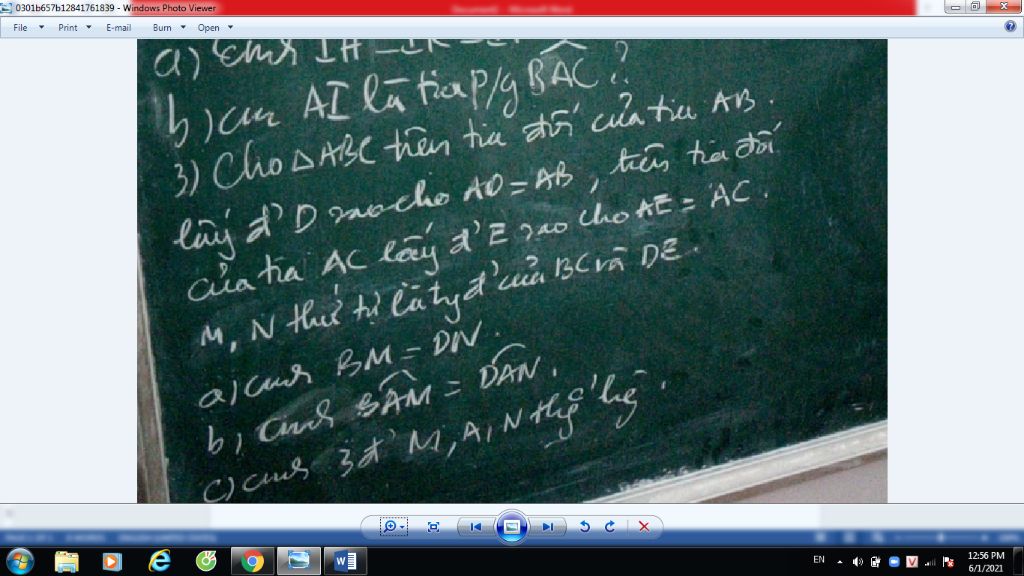 0301b657b12841761839 - Windows Photo Viewer
File Print E-mail Burn Open
a) cmr IH = IK =
b) cm AI là tia p/g BAC ?
3) Cho △ABC trên tia đối của tia AB.
lấy đ' D sao cho AD = AB, trên tia đối
của tia AC lấy đ' E sao cho AE = AC.
M, N thứ tự là tg đ' của BC và DE.
a) cmr BM = DN.
b, cmr BAM = DAN.
c) cmr 3 đ' M, A, N thg hg.
EN
12:56 PM
6/1/2021